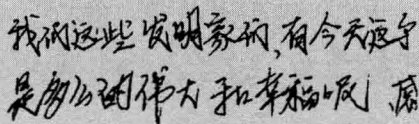 我们这些发明家们,有今天这个
是多么的伟大和幸福呀